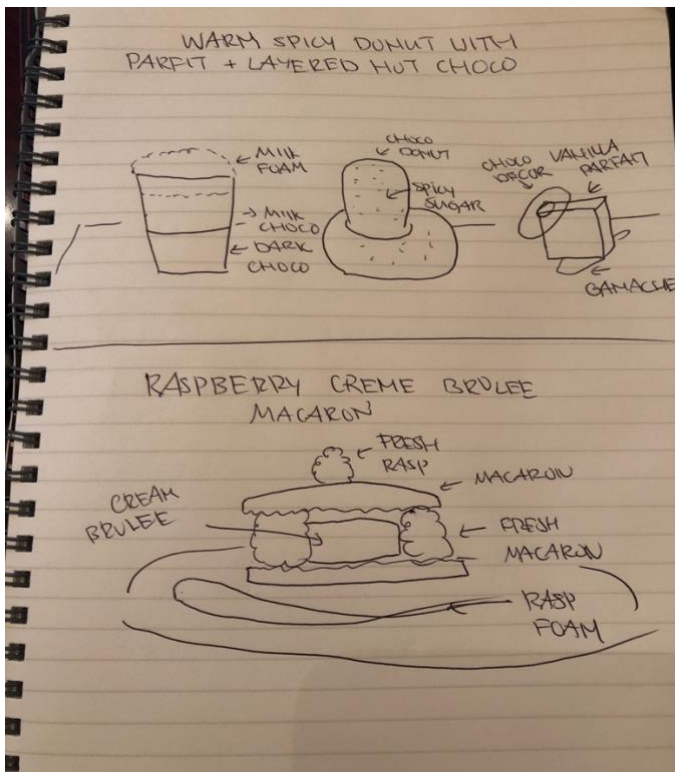 WARM SPICY DONUT WITH
PARFIT + LAYERED HOT CHOCO
MILK
FOAM
MILK
CHOCO
DARK
CHOCO
CHOCO
DONUT
SPICY
SUGAR
CHOCO
DECOR
VANILLA
PARFAIT
GANACHE
RASPBERRY CREME BRULEE
MACARON
FRESH
RASP
MACARON
CREAM
BRULEE
FRESH
MACARON
RASP
FOAM